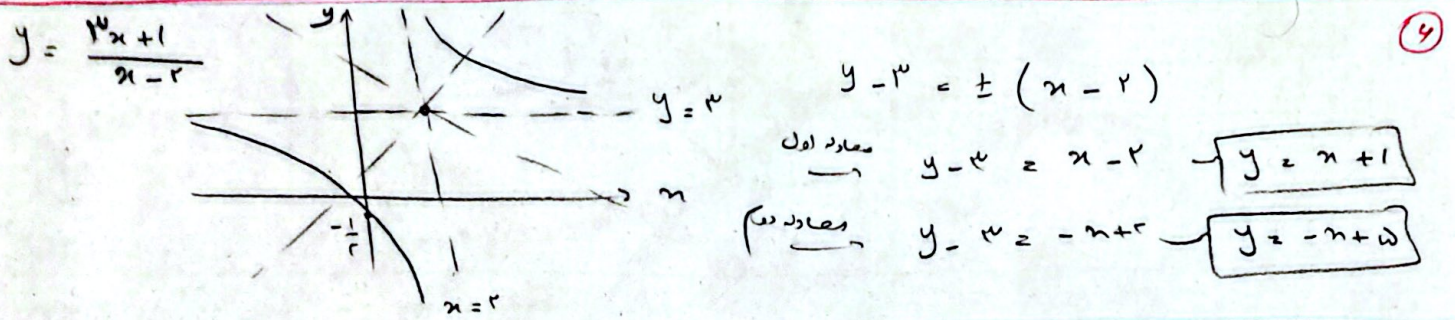 ۴
y = (۳x + ۱) / (x - ۲)
y
y = ۳
x
-۱/۲
x = ۲
y - ۳ = ± (x - ۲)
معادله اول y - ۳ = x - ۲ → y = x + ۱
معادله دوم y - ۳ = -x + ۲ → y = -x + ۵